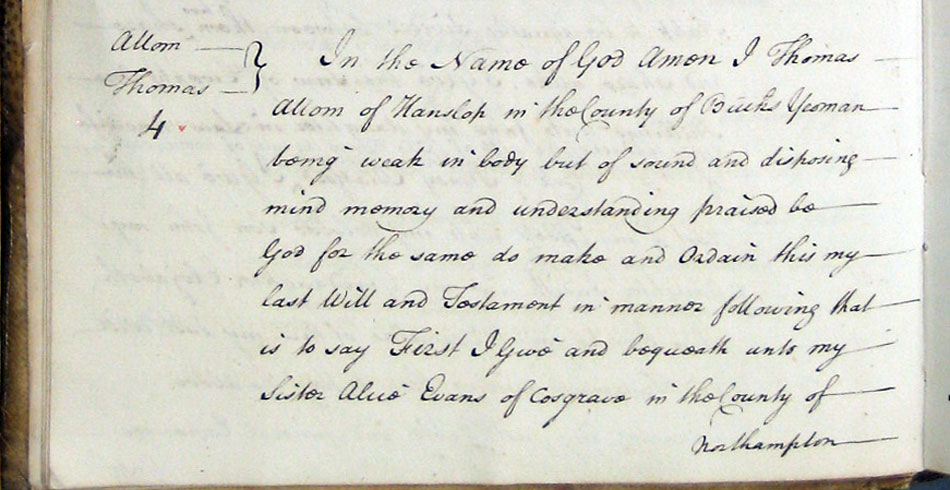 Allom
Thomas
4
In the Name of God Amen I Thomas
Allom of Hanslop in the County of Bucks Yeoman
being weak in body but of sound and disposing
mind memory and understanding praised be
God for the same do make and Ordain this my
last Will and Testament in manner following that
is to say First I Give and bequeath unto my
Sister Alice Evans of Cosgrave in the County of
Northampton